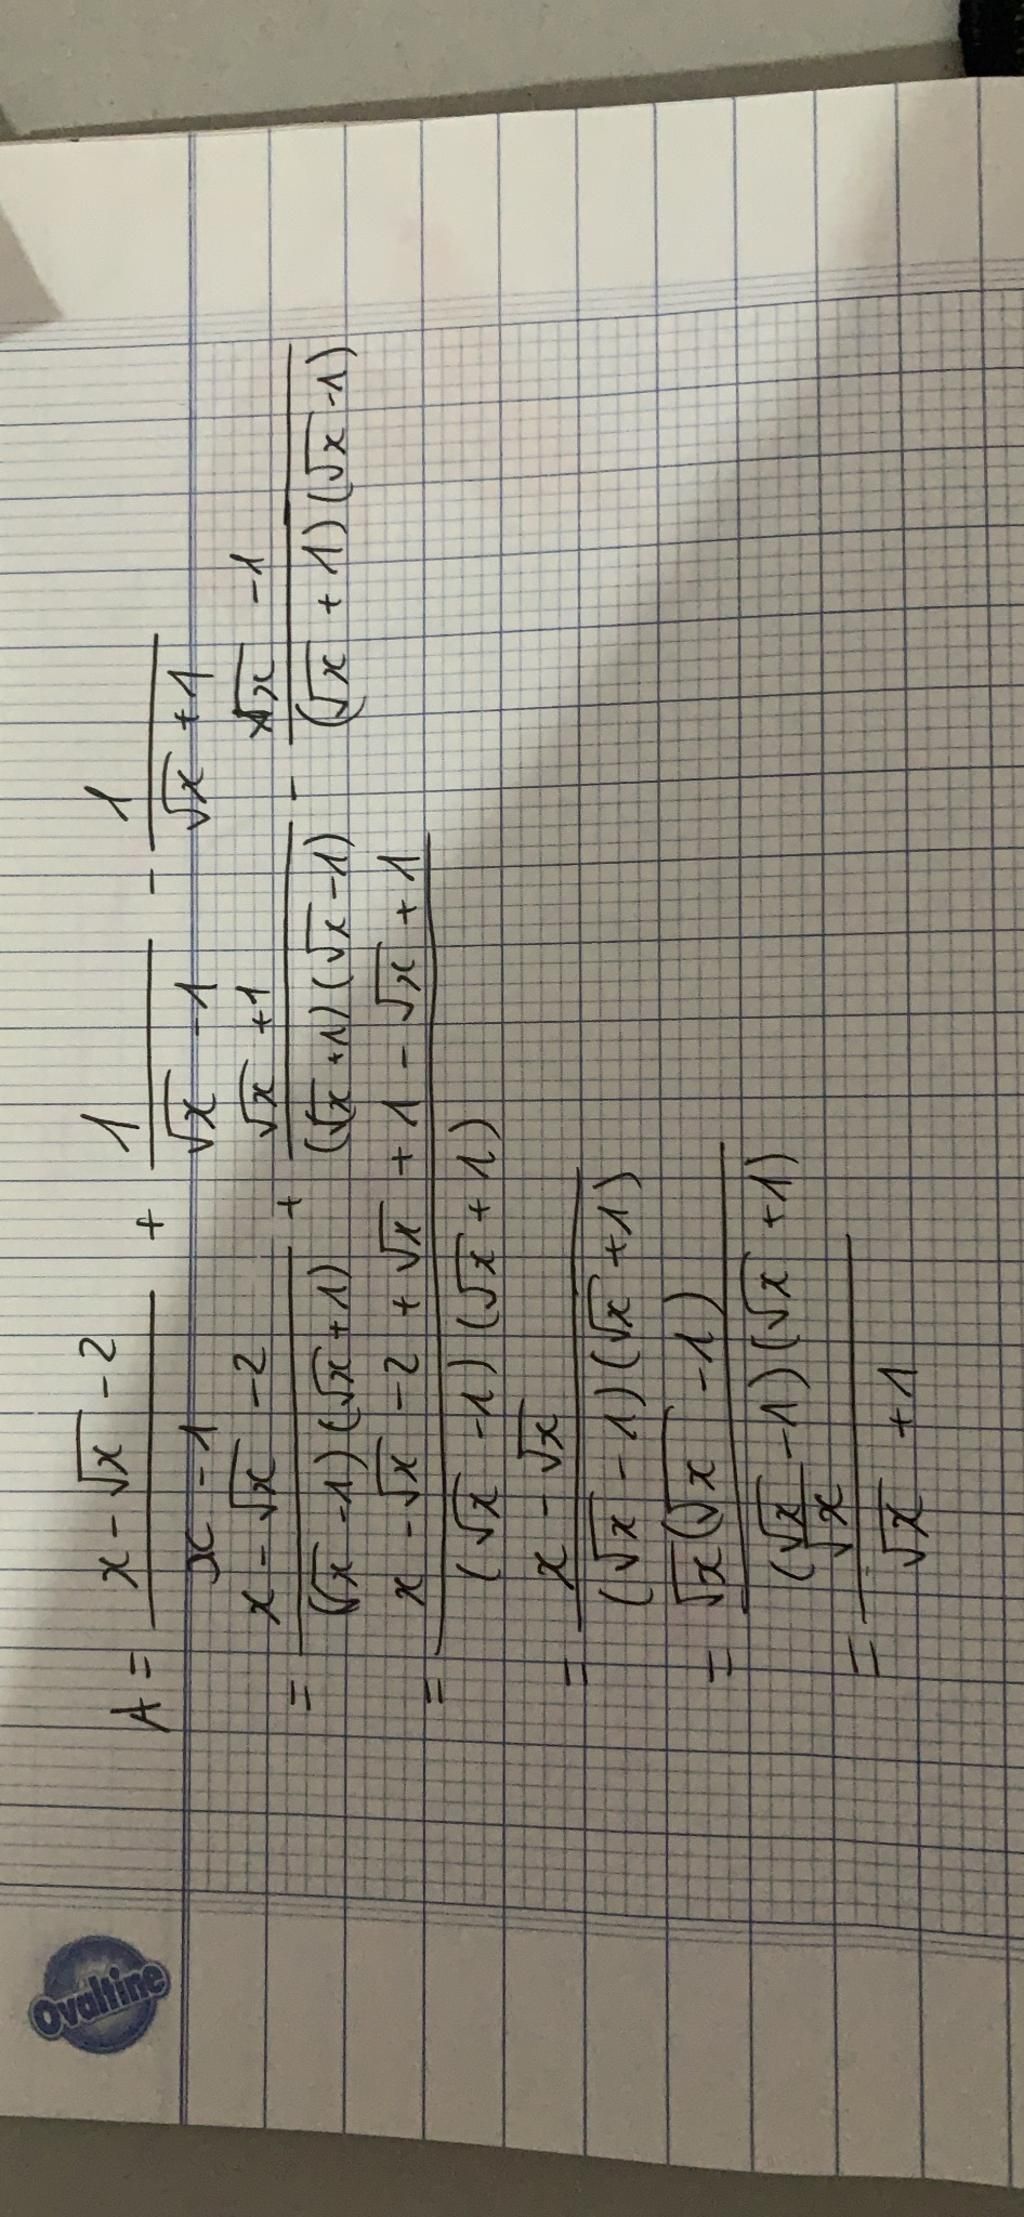 Ovaltine
A = (x - √x - 2)/(x - 1) + 1/(√x - 1) - 1/(√x + 1)
= (x - √x - 2)/((√x - 1)(√x + 1)) + (√x + 1)/((√x + 1)(√x - 1)) - (√x - 1)/((√x + 1)(√x - 1))
= (x - √x - 2 + √x + 1 - √x + 1)/((√x - 1)(√x + 1))
= (x - √x)/((√x - 1)(√x + 1))
= (√x(√x - 1))/((√x - 1)(√x + 1))
= √x/(√x + 1)